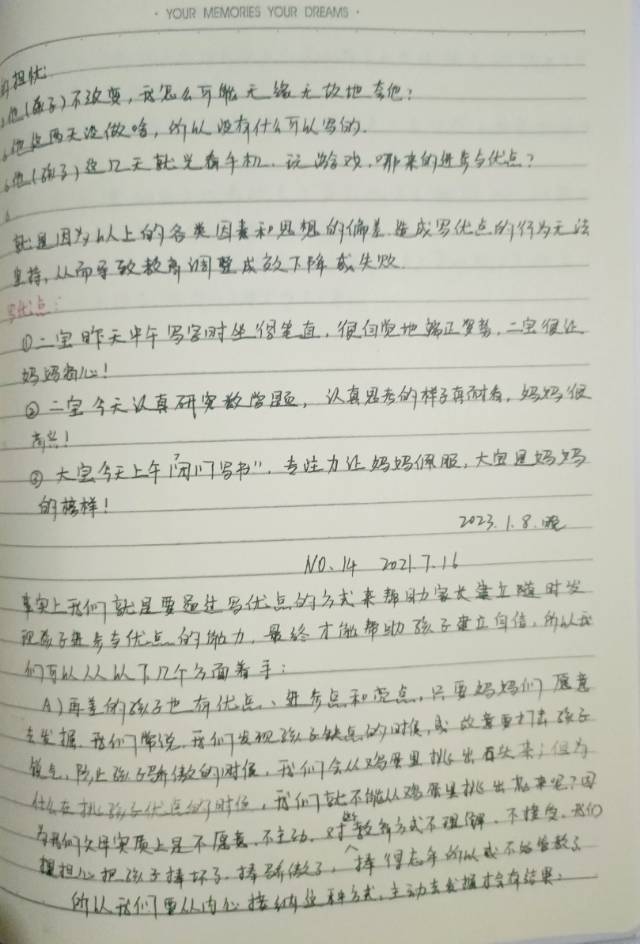 · YOUR MEMORIES YOUR DREAMS ·
担忧
他(孩子)不改变,我怎么可能无缘无故地夸他?
他这两天没做啥,所以没有什么可以写的.
他(孩子)这几天就光看手机、玩游戏,哪来的进步与优点?
就是因为以上的各类因素和思想的偏差造成写优点的行为无法
坚持,从而导致教育调整成效下降或失败.
写优点:
①二宝昨天中午写字时坐得笔直,很自觉地端正姿势,二宝很让
妈妈省心!
②二宝今天认真研究数学题,认真思考的样子真耐看,妈妈很
高兴!
③大宝今天上午"闭门写书",专注力让妈妈佩服,大宝是妈妈
的榜样!
2023.1.8.晚
NO.14 2021.7.16
事实上我们就是要通过写优点的方式来帮助家长建立随时发
现孩子进步与优点的能力,最终才能帮助孩子建立自信,所以我
们可以从以下几个方面着手:
A)再差的孩子也有优点、进步点和亮点,只要妈妈们愿意
去发掘.我们常说,我们发现孩子缺点的时候,或故意要打击孩子
锐气,防止孩子骄傲的时候,我们会从鸡蛋里挑出石头来;但为
什么在挑孩子优点的时候,我们就不能从鸡蛋里挑出来呢?因
为我们父母实质上是不愿意、不主动,对教育方式不理解、不接受.我们
担心把孩子捧坏了,捧骄傲了,捧得忘乎所以或不好管教了
所以我们要从内心接纳这种方式,主动去发掘才会有结果.